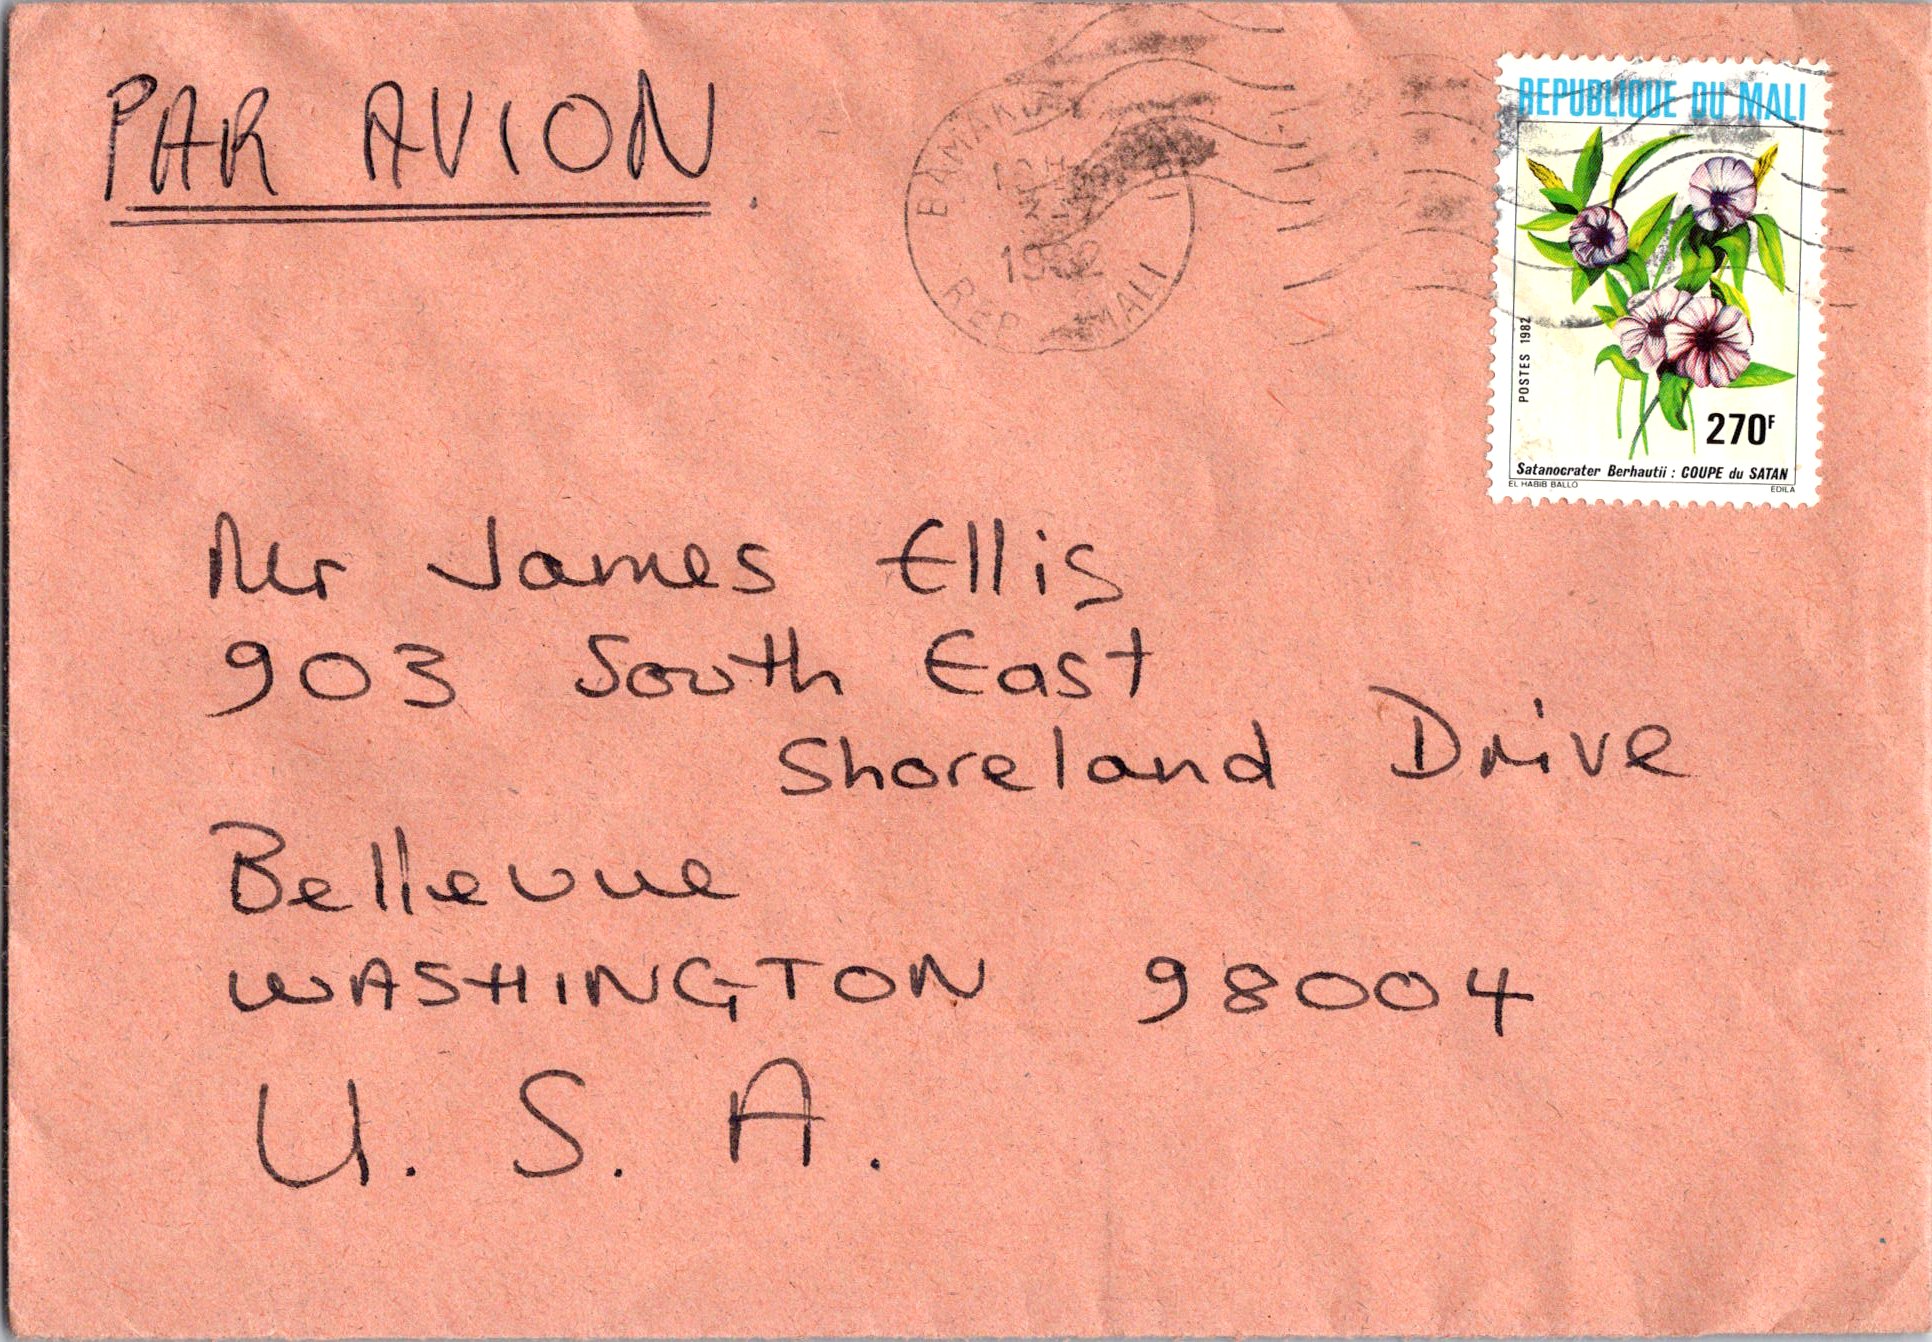 PAR AVION
BAMAKO
1982
REP MALI
REPUBLIQUE DU MALI
POSTES 1982
270F
Satanocrater Berhautii : COUPE du SATAN
EL HABIB BALLO
EDILA
Mr James Ellis
903 South East
Shoreland Drive
Bellevue
WASHINGTON 98004
U. S. A.